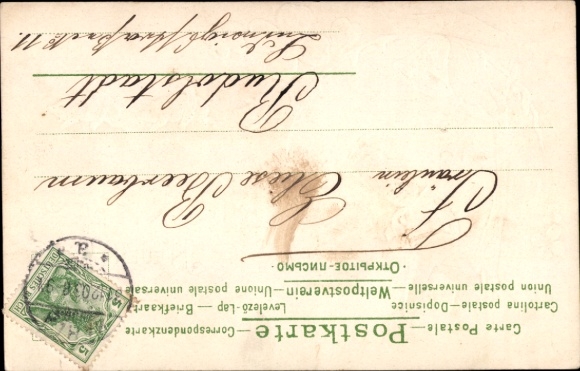 Carte Postale — Postkarte — Correspondenzkarte
Cartolina postale — Dopisnice — Levelező-Lap — Briefkaart
Union postale universelle — Weltpostverein — Unione postale universale
· ОТКРЫТОЕ-ПИСЬМО ·
Fräulein Eliese Beerbaum
Rudolstadt
11.
5
5